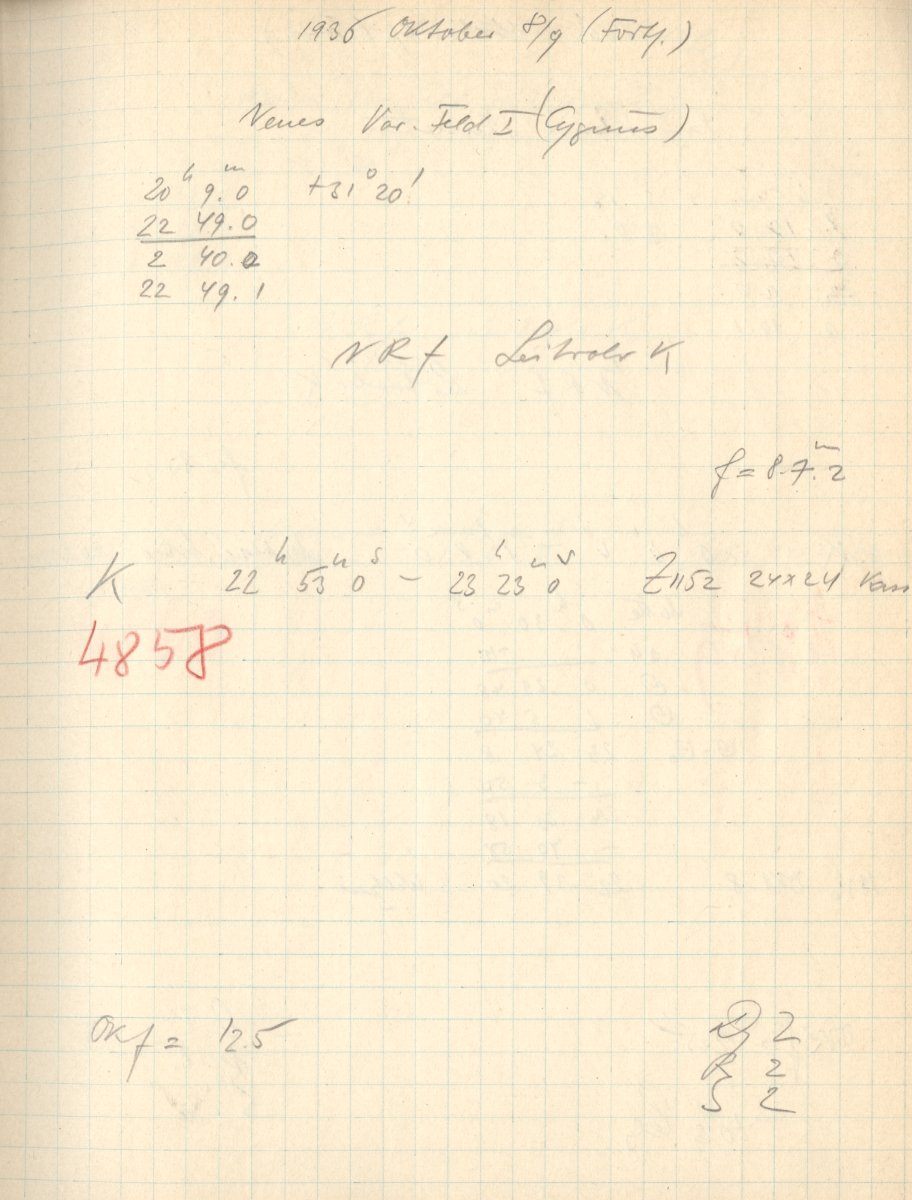 1936 Oktober 8/9 (Forts.)
Neues Var. Feld I (Cygnus)
20h 9.m0 +31° 20'
22 49.0
2 40.0
22 49.1
NRf Leitrohr K
f = 8.7.m2
K 22h 53m 0s – 23h 23m 0s Z1152 24x24 Kass
4858
Okf = 12.5
D 2
R 2
S 2